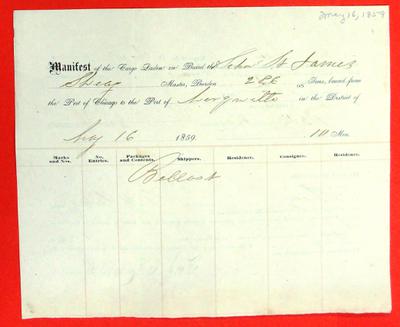 May 16, 1859
Manifest of the Cargo Laden on Board the Schr St James
Master, Burden 286 95 Tons, bound from
the Port of Chicago to the Port of in the District of
May 16 1859. 10 Men.
Marks and Nos. No. Entries. Packages and Contents. Shippers. Residence. Consignee. Residence.
Ballast